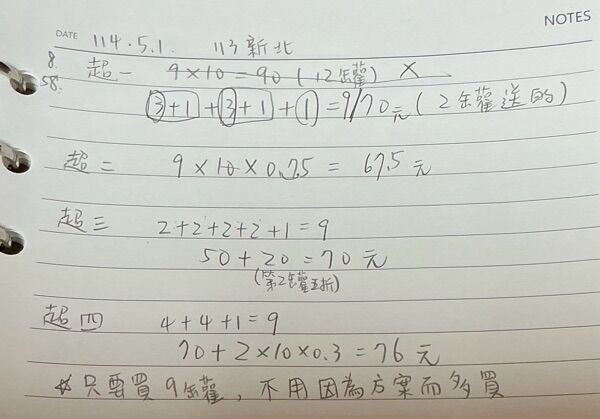 NOTES
DATE 114.5.1. 113新北
8.
58.
超一 9×10=90(12缶罐) ×
3+1+3+1+1=9/70元(2缶罐送的)
超二 9×10×0.75=67.5元
超三 2+2+2+2+1=9
50+20=70元
(第2缶罐五折)
超四 4+4+1=9
70+2×10×0.3=76元
☆只要買9缶罐,不用因為方案而多買